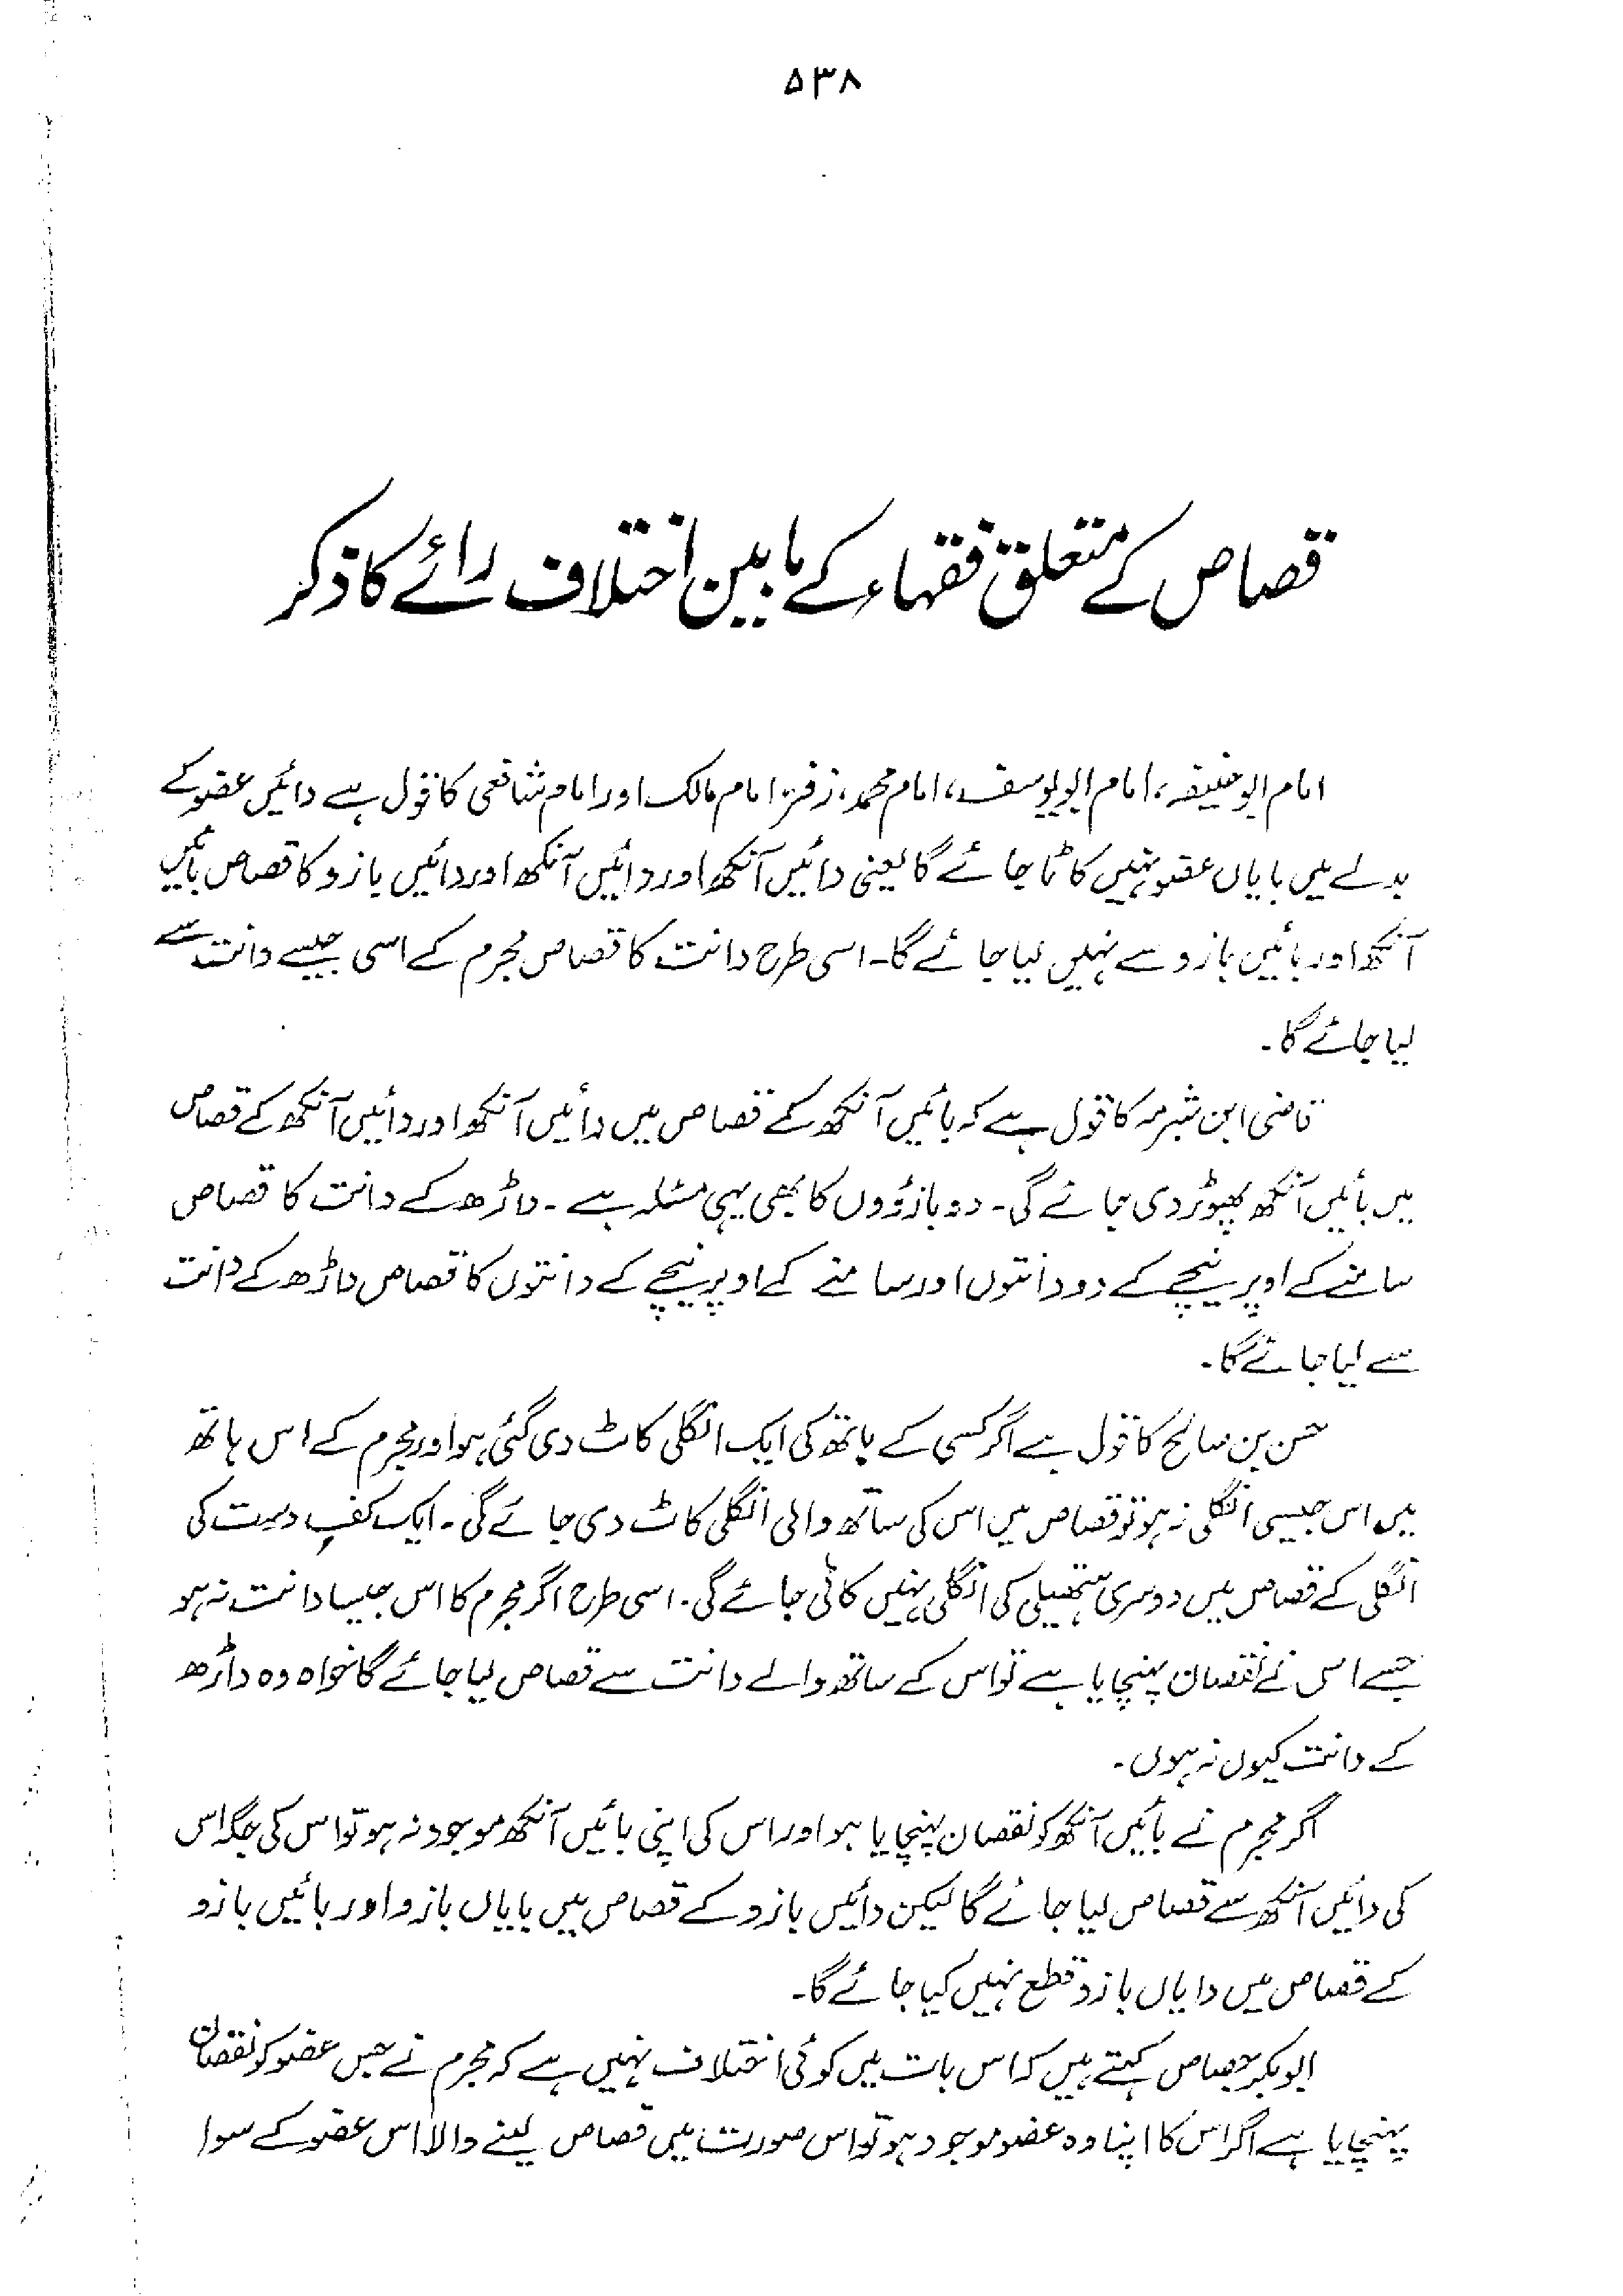 ۵۳۸
قصاص کے متعلق فقہاء کے مابین اختلاف رائے کا ذکر
امام ابوحنیفہ، امام ابویوسف، امام محمد، زفر، امام مالک اور امام شافعی کا قول ہے دائیں عضو کے
بدلے میں بایاں عضو نہیں کاٹا جائے گا یعنی دائیں آنکھ اور دائیں آنکھ اور دائیں بازو کا قصاص بائیں
آنکھ اور بائیں بازو سے نہیں لیا جائے گا۔ اسی طرح دانت کا قصاص مجرم کے اسی جیسے دانت سے
لیا جائے گا۔
قاضی ابن شبرمہ کا قول ہے کہ بائیں آنکھ کے قصاص میں دائیں آنکھ اور دائیں آنکھ کے قصاص
میں بائیں آنکھ پھوڑ دی جائے گی۔ دو بازوؤں کا بھی یہی مسئلہ ہے۔ داڑھ کے دانت کا قصاص
سامنے کے اوپر نیچے کے دو دانتوں اور سامنے کے اوپر نیچے کے دانتوں کا قصاص داڑھ کے دانت
سے لیا جائے گا۔
حسن بن صالح کا قول ہے اگر کسی کے ہاتھ کی ایک انگلی کاٹ دی گئی ہو اور مجرم کے اس ہاتھ
میں اس جیسی انگلی نہ ہو تو قصاص میں اس کی ساتھ والی انگلی کاٹ دی جائے گی۔ ایک کفِ دست کی
انگلی کے قصاص میں دوسری ہتھیلی کی انگلی نہیں کاٹی جائے گی۔ اسی طرح اگر مجرم کا اس جیسا دانت نہ ہو
جسے اس نے نقصان پہنچایا ہے تو اس کے ساتھ والے دانت سے قصاص لیا جائے گا خواہ وہ داڑھ
کے دانت کیوں نہ ہوں۔
اگر مجرم نے بائیں آنکھ کو نقصان پہنچایا ہو اور اس کی اپنی بائیں آنکھ موجود نہ ہو تو اس کی جگہ اس
کی دائیں آنکھ سے قصاص لیا جائے گا لیکن دائیں بازو کے قصاص میں بایاں بازو اور بائیں بازو
کے قصاص میں دایاں بازو قطع نہیں کیا جائے گا۔
ابوبکر جصاص کہتے ہیں کہ اس بات میں کوئی اختلاف نہیں ہے کہ مجرم نے جس عضو کو نقصان
پہنچایا ہے اگر اس کا اپنا وہ عضو موجود ہو تو اس صورت میں قصاص لینے والا اس عضو کے سوا